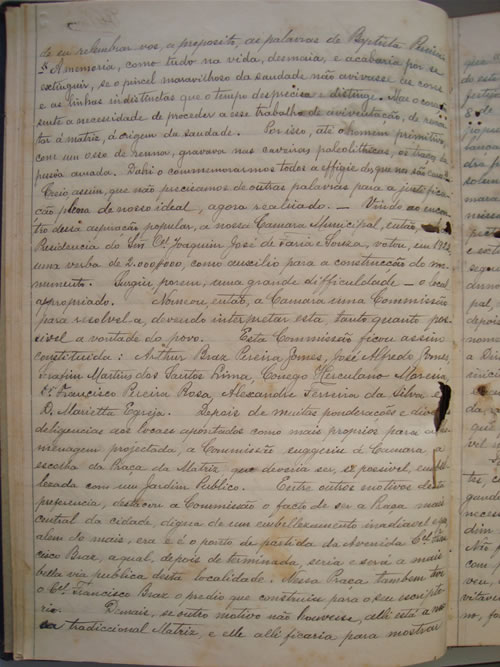 de eu relembrar-vos, a proposito, as palavras de Baptista Pereira:
"A memoria, como tudo na vida, desmaia, e acabaria por se
extinguir, se o pincel maravilhoso da saudade não avivasse as cores
e as linhas indistinctas que o tempo desmerece e distinge. Mas o cora
sente a necessidade de proceder a esse trabalho de aviventação, de remon
tar á matriz, á origem da saudade. Por isso, até o homem primitivo,
com um osso de renna, gravava nas caveiras paleolithicas, os traços da
pessôa amada. Dahi o commemorarmos todos a effigie dos que nos são caros."
Creio, assim, que não precisamos de outras palavras para a justifica-
ção plena de nosso ideal, agora realisado. — Vindo ao encon
tro dessa aspiração popular, a nossa Camara Municipal, então, sob
Presidencia do Snr. Cel. Joaquim José de Faria e Souza, votou, em 192
uma verba de 2.000$000, como auxilio para a construcção do mo
numento. Surgiu porem, uma grande difficuldade — o local
apropriado. Nomeou, então, a Camara uma Commissão
para resolvel-a, devendo interpretar esta, tanto quanto pos
sivel a vontade do povo. Esta Commissão ficou assim
constituida: Arthur Braz Pereira Gomes, José Alfredo Gomes,
Serafim Martins dos Santos Lima, Conego Herculano Moreira,
Dr. Francisco Pereira Rosa, Alexandre Ferreira da Silva e
D. Marietta Egreja. Depois de muitas ponderações e
deligencias aos locaes apontados como mais proprios para a ho
menagem projectada, a Commissão suggeriu á Camara a
escolha da Praça da Matriz que deveria ser, si possivel, embel
lesada com um Jardim Publico. Entre outros motivos desta
preferencia, destacou a Commissão o facto de ser a Praça mais
central da cidade, digna de um embellesamento inadiavel e que,
alem do mais, era e é o ponto de partida da Avenida Cel. Fran
cisco Braz, a qual, depois de terminada, seria e será a mais
bella via publica desta localidade. Nessa Praça tambem teve
o Cel. Francisco Braz o predio que construiu para o seu escripto
rio. Demais, se outro motivo não houvesse, alli está a nos
sa tradiccional Matriz, e elle alli ficaria para mostrar